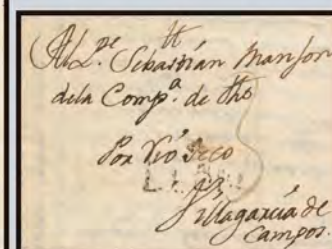 Al P.e Sebastián
dela Comp.a de Jhs
Por Rió Seco
Villagarcía de
Campos.